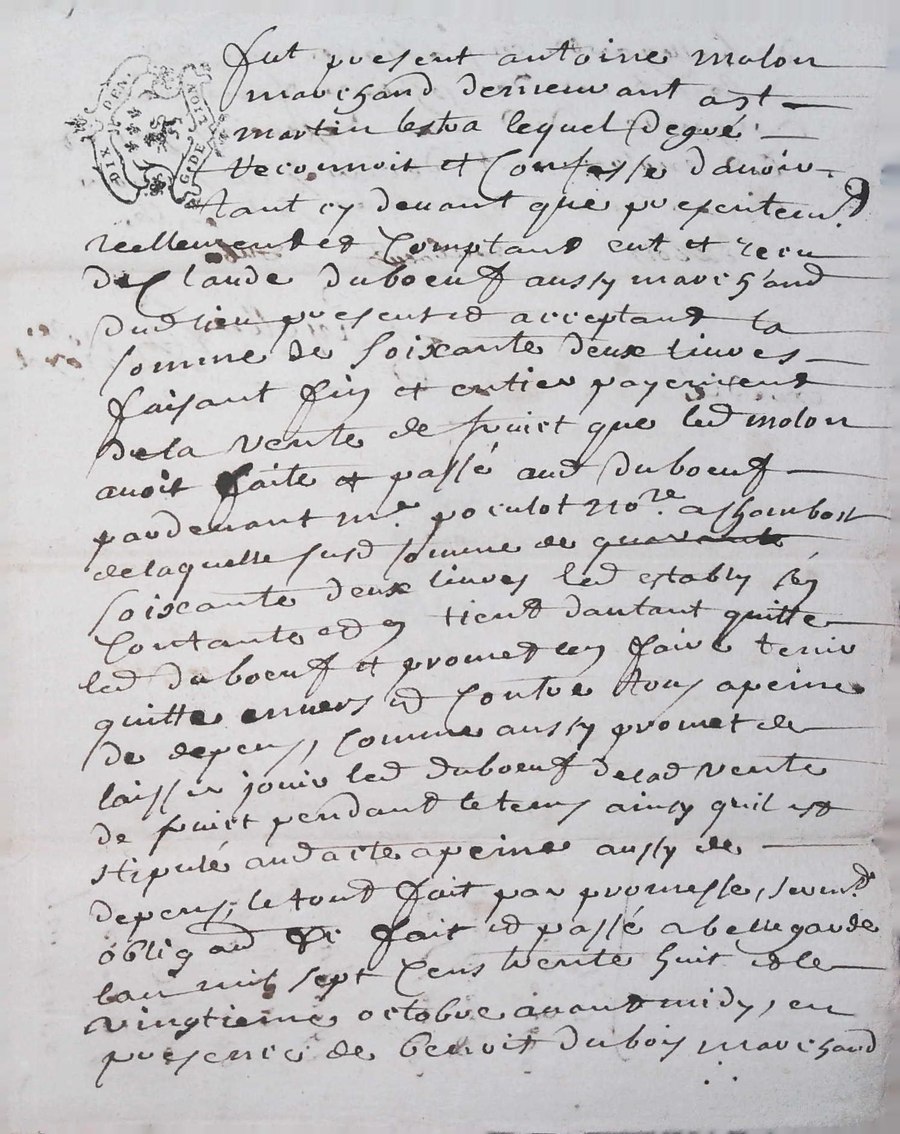 DIX DEN.
G. DE LION
fut present antoine molon
marchand demeurant a st
martin lestra lequel degré
reconnoit et Confesse davoir
tant cy devant que presentemt
reellement et Comptant eut et recu
de Claude duboeuf aussy marchand
dud lieu present et acceptant la
somme de soixante deux livres
faisant fin et entier payement
de la vente de fruict que led molon
avoit faite et passé aud duboeuf
pardevant me poculot nore a chambost
de laquelle susd somme de quarante
soixante deux livres led estably sen
Contante et en tient dautant quitte
led duboeuf et promet len faire tenir
quitte envers et Contre tous apeine
de depens, Comme aussy promet de
laisser jouir led duboeuf delad vente
de fruict pendant le tems ainsy quil est
stipulé aud acte apeine aussy de
depens, le tout fait par promesse, sermt
obligaõn fait et passé a bellegarde
lan mil sept Cens trente huit et le
vingtieme octobre avant midy, en
presence de benoit dubois marchand